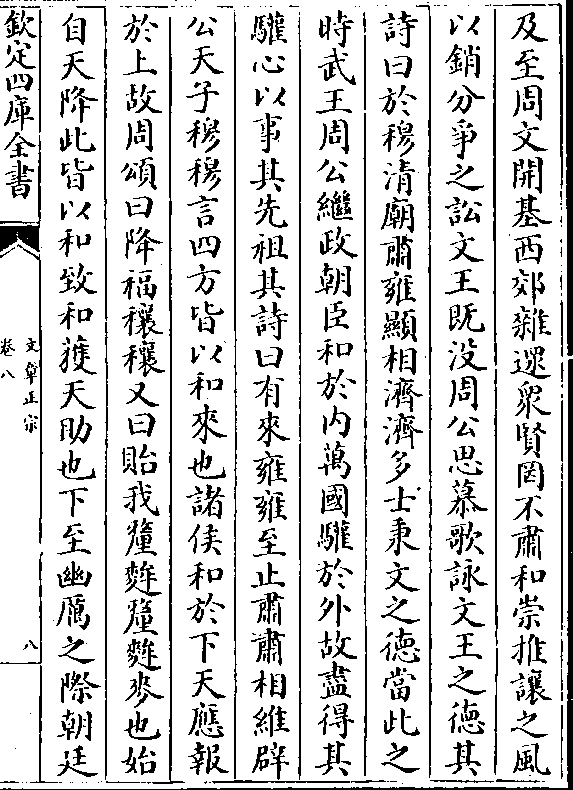 及至周文開基西郊雜遝衆賢罔不肅和崇推讓之風
以銷分爭之訟文王既没周公思慕歌詠文王之德其
詩曰於穆清廟肅雍顯相濟濟多士秉文之德當此之
時武王周公繼政朝臣和於内萬國驩於外故盡得其
驩心以事其先祖其詩曰有來雍雍至止肅肅相維辟
公天子穆穆言四方皆以和來也諸侯和於下天應報
於上故周頌曰降福穰穰又曰貽我釐麰釐麰麥也始
自天降此皆以和致和獲天助也下至幽厲之際朝廷
欽定四庫全書
文章正宗
卷八
八